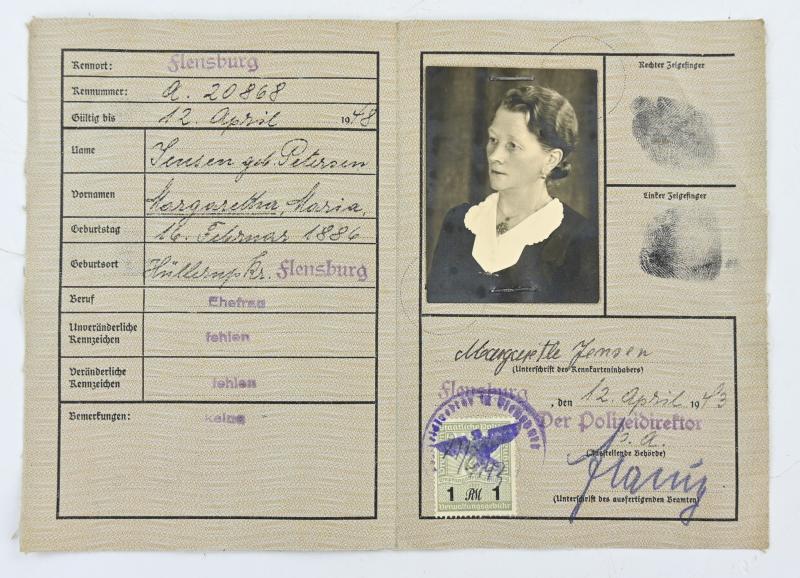 Kennort: Flensburg
Kennummer: A. 20868
Gültig bis 12. April 1948
Name Jensen geb. Petersen
Vornamen Margaretha, Maria,
Geburtstag 16. Februar 1886
Geburtsort Hüllerup Kr. Flensburg
Beruf Ehefrau
Unveränderliche Kennzeichen fehlen
Veränderliche Kennzeichen fehlen
Bemerkungen: keine
Rechter Zeigefinger
Linker Zeigefinger
Margarethe Jensen
(Unterschrift des Kennkarteninhabers)
Flensburg, den 12. April 1943
Der Polizeidirektor
(Ausstellende Behörde)
(Unterschrift des ausfertigenden Beamten)
1 RM 1
Verwaltungsgebühr